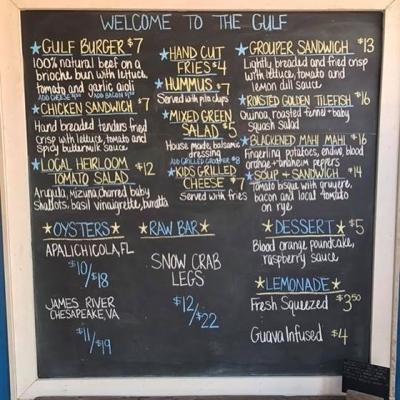 WELCOME TO THE GULF
GULF BURGER $7
100% natural beef on a
brioche bun with lettuce,
tomato and garlic aioli
ADD CHEESE ADD BACON
CHICKEN SANDWICH $7
Hand breaded tenders fried
crisp with lettuce and
spicy buttermilk sauce
LOCAL HEIRLOOM
TOMATO SALAD $12
Arugula, mizuna, charred baby
shallots, basil vinaigrette, burrata
HAND CUT
FRIES $4
HUMMUS $7
Served with pita chips
MIXED GREEN
SALAD $5
House made balsamic
dressing
ADD GRILLED GROUPER $8
KIDS GRILLED
CHEESE $7
Served with fries
GROUPER SANDWICH $13
Lightly breaded and fried crisp
with lettuce, tomato and
lemon dill sauce
ROASTED GOLDEN TILEFISH $16
Quinoa, roasted fennel + baby
squash salad
BLACKENED MAHI MAHI $16
Fingerling potatoes, endive, blood
orange + banheim peppers
SOUP + SANDWICH $14
Tomato bisque with gruyere,
bacon and local tomato
on rye
OYSTERS
APALICHICOLA, FL
$10/$18
JAMES RIVER
CHESAPEAKE, VA
$11/$19
RAW BAR
SNOW CRAB
LEGS
$12/$22
DESSERT $5
Blood orange poundcake,
raspberry sauce
LEMONADE
Fresh Squeezed $3.50
Guava Infused $4